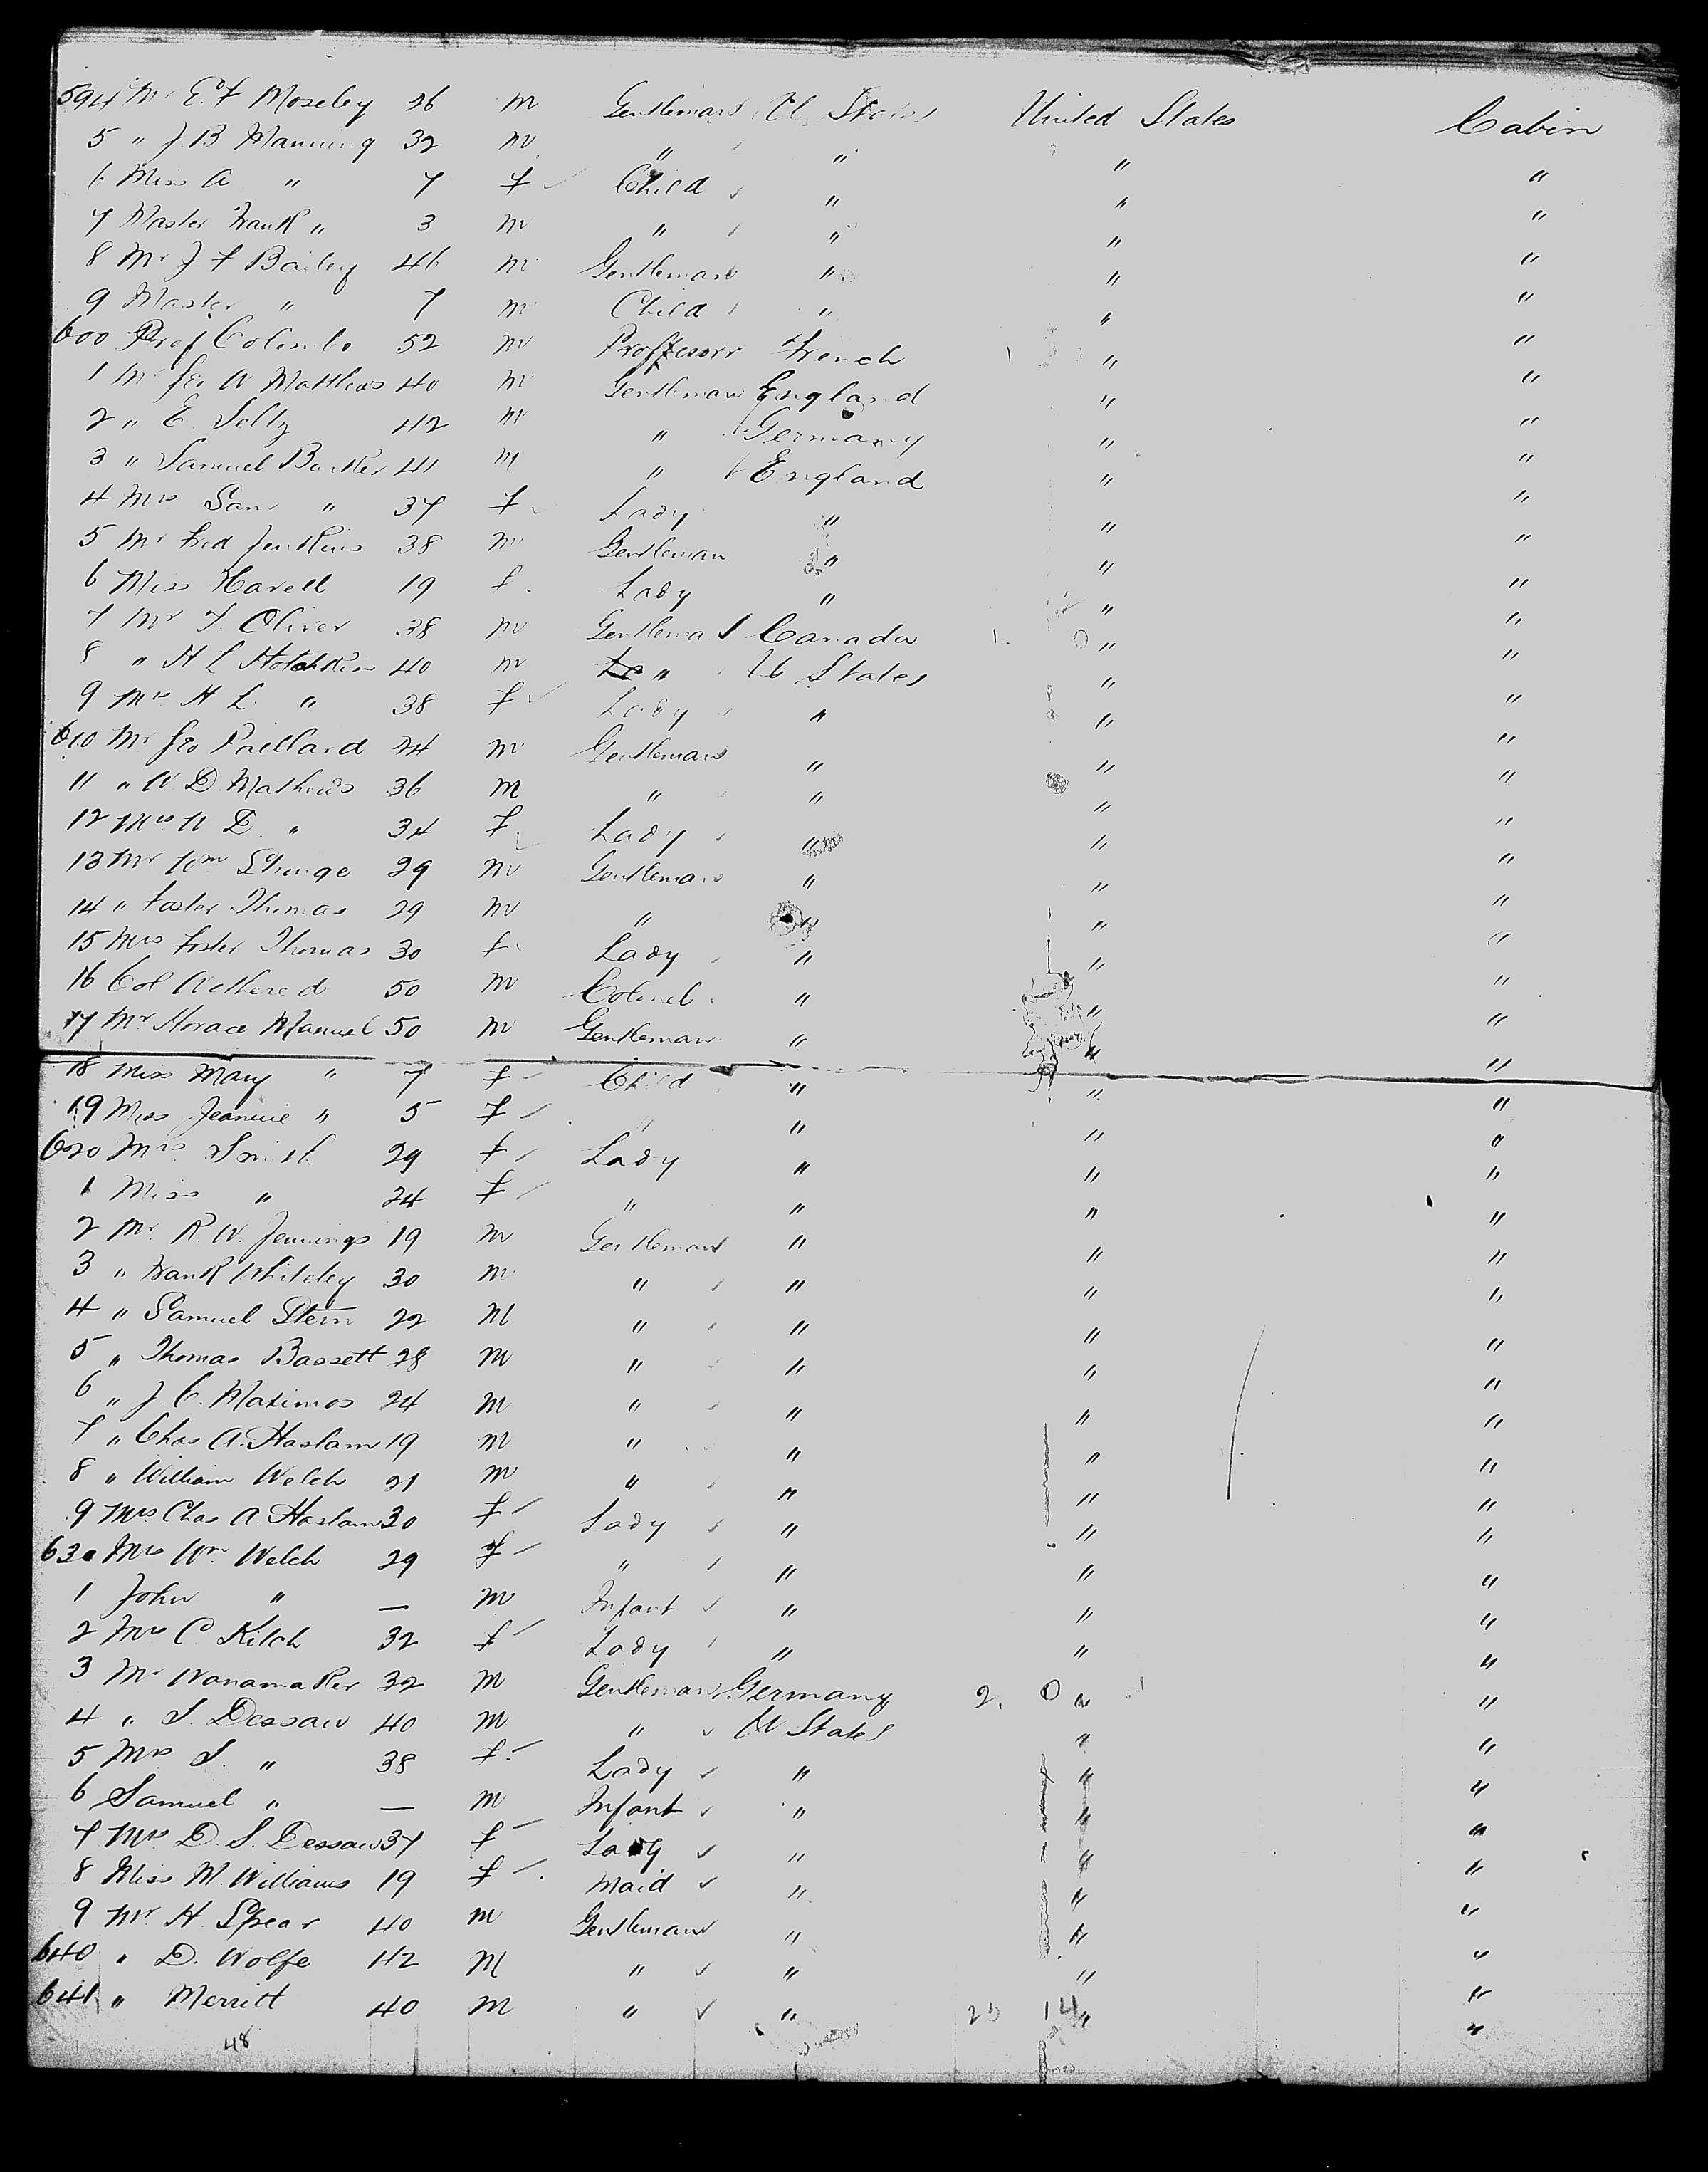 594 Mr E. F Moseley 26 m Gentleman U. States United States Cabin
5 " J. B Manning 32 m " " " "
6 Miss A " 7 f Child " " "
7 Master Frank " 3 m " " " "
8 Mr J. F Bailey 46 m Gentleman " " "
9 Master " 7 m Child " " "
600 Prof Colombo 52 m Proffessor French " "
1 Mr Geo W Matthews 40 m Gentleman England " "
2 " E. Selty 42 m " Germany " "
3 " Samuel Barker 41 m " England " "
4 Mrs Sam " 37 f Lady " " "
5 Mr Fred Jenkins 38 m Gentleman " " "
6 Miss Harell 19 f Lady " " "
7 Mr F. Oliver 38 m Gentleman Canada 1. 0 " "
8 " H L Hotchkiss 40 m " U States " "
9 Mrs H L. " 38 f Lady " " "
610 Mr Geo Paillard 24 m Gentleman " " "
11 " W. D. Mathews 36 m " " " "
12 Mrs W D. " 34 f Lady " " "
13 Mr Wm 29 m Gentleman " " "
14 " Foster Thomas 29 m " " " "
15 Mrs Foster Thomas 30 f Lady " " "
16 Col Wethered 50 m Colonel " " "
17 Mr Horace Manuel 50 m Gentleman " " "
18 Miss Mary " 7 f Child " " "
19 Miss Jeannie " 5 f " " " "
620 Mrs Smith 29 f Lady " " "
1 Miss " 24 f " " " "
2 Mr. R. W. Jennings 19 m Gentleman " " "
3 " Frank Whiteley 30 m " " " "
4 " Samuel Stern 22 m " " " "
5 " Thomas Bassett 28 m " " " "
6 " J. C. Maximos 24 m " " " "
7 " Chas A. Haslam 19 m " " " "
8 " William Welch 21 m " " " "
9 Mrs Chas A. Haslam 30 f Lady " " "
630 Mrs Wm Welch 29 f " " " "
1 John " — m Infant " " "
2 Mrs C. Kitch 32 f Lady " " "
3 Mr Wanamaker 32 m Gentleman Germany 2. 0 " "
4 " S. Dessau 40 m " U States " "
5 Mrs S. " 38 f Lady " " "
6 Samuel " — m Infant " " "
7 Mrs D. S. Dessau 37 f Lady " " "
8 Miss M. Williams 19 f Maid " " "
9 Mr H. Spear 40 m Gentleman " " "
640 " D. Wolfe 42 m " " " "
641 " Merritt 40 m " " 14 " "
48